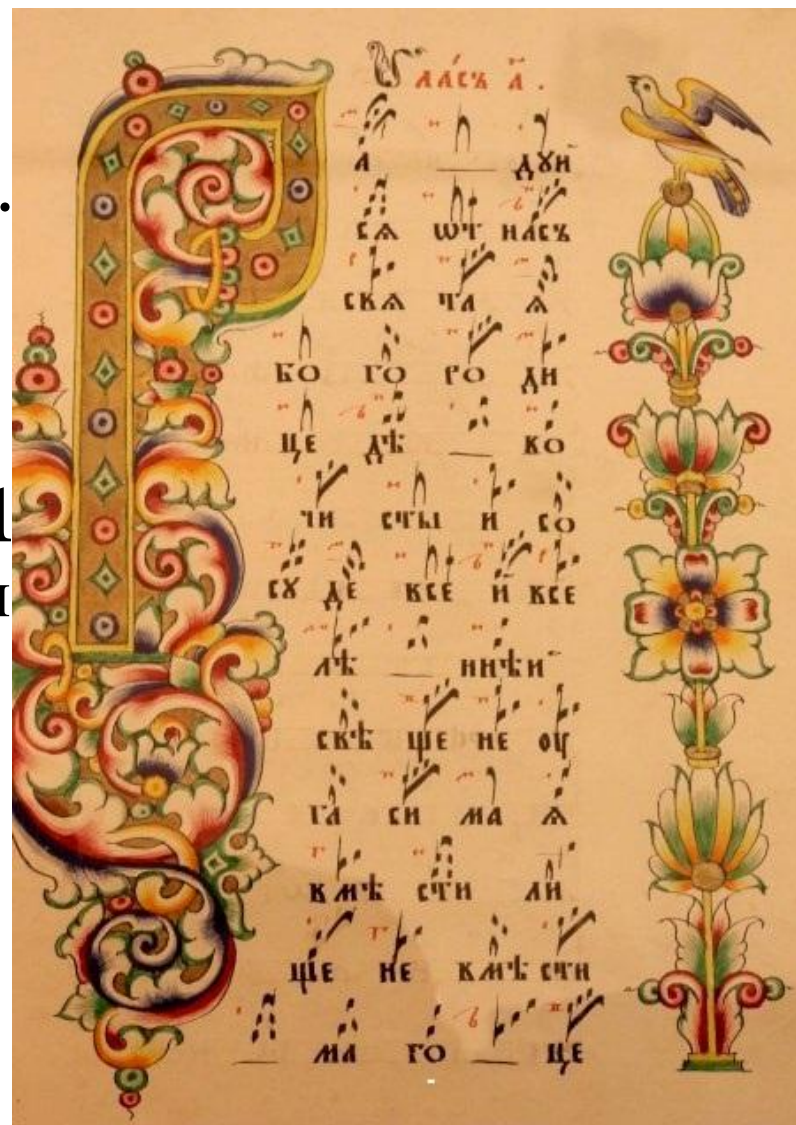 Гла́съ а҃ .
Ра — дꙋй
сѧ ѡт насъ
свѧ та ѧ
бо го ро ди
це дѣ — во
чи сты и со
сꙋ де все й все
лѣ — ннѣй
свѣ ще не оу
га си ма ѧ
вмѣ сти ли
ще не вмѣ сти
— ма го — це